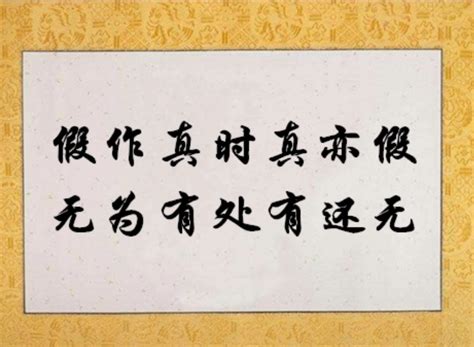 假作真时真亦假
无为有处有还无